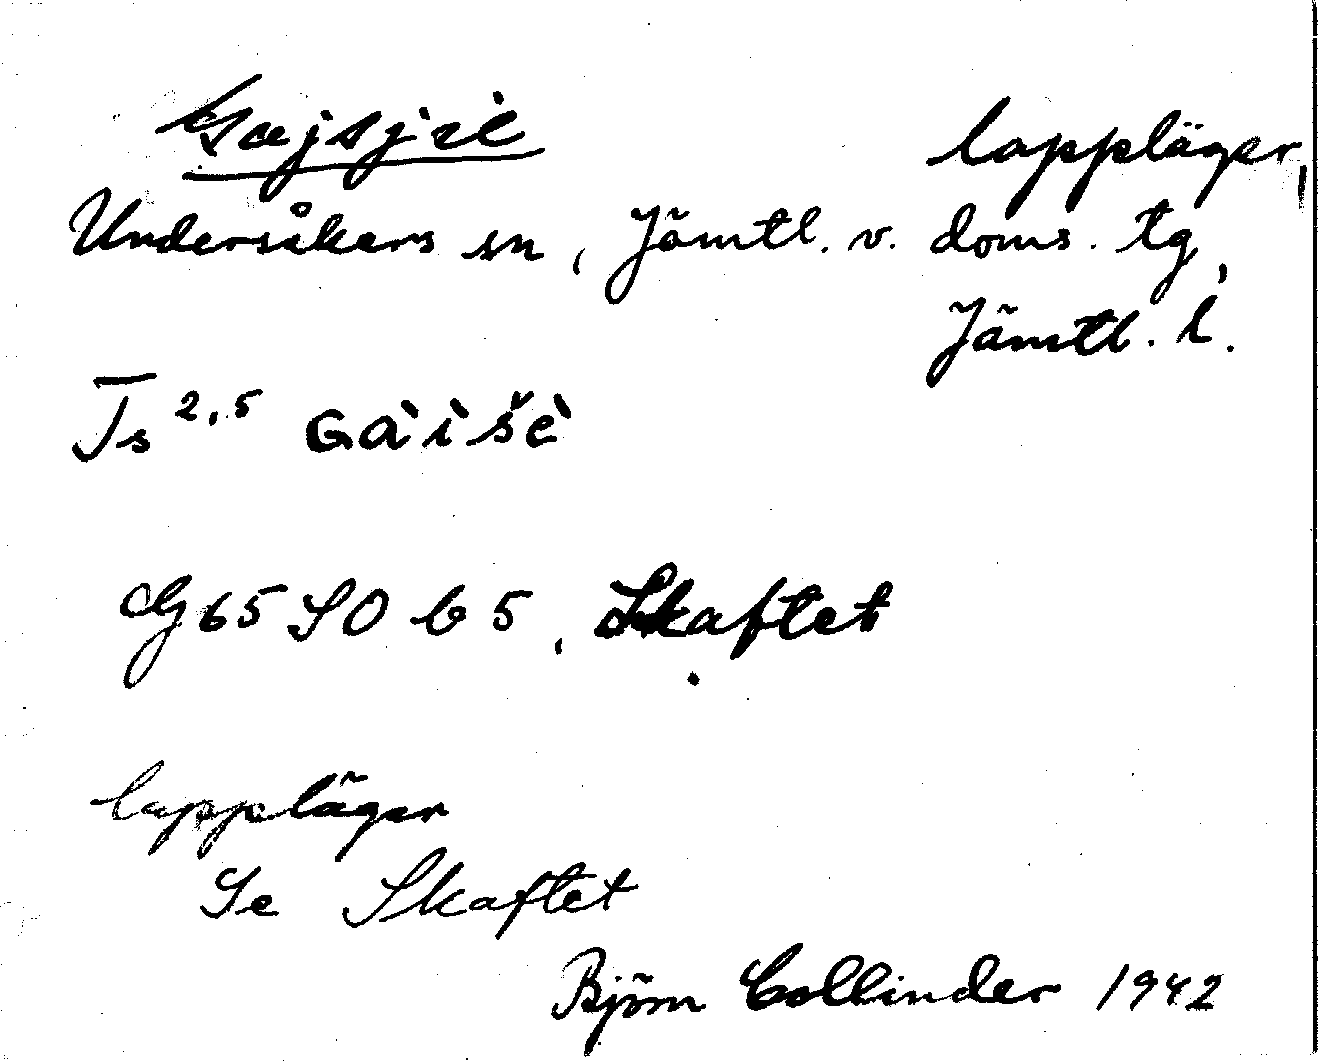 Gajsjiè lappläger,
Undersåkers sn, Jämtl. v. doms. tg,
Jämtl. l.
Js 2,5 Gàìšè
G 65 SO b 5, Skaftet
lappläger
Se Skaftet
Björn Collinder 1942